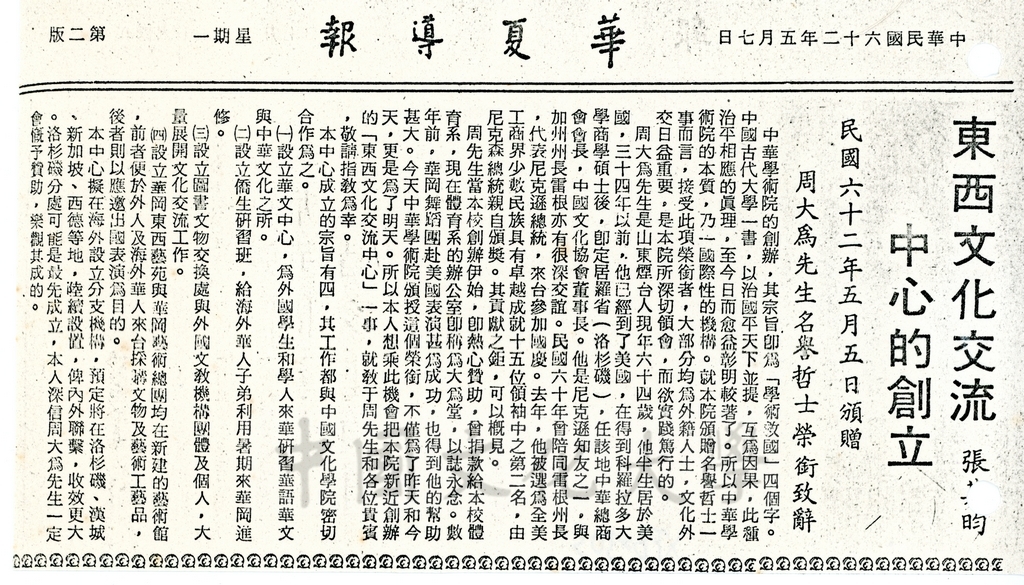 中華民國六十二年五月七日
華夏導報
星期一
第二版
東西文化交流
中心的創立
張其昀
民國六十二年五月五日頒贈
周大為先生名譽哲士榮銜致辭
中華學術院的創辦,其宗旨卽為「學術救國」四個字。
中國古代大學一書,以治國平天下並提,互為因果,此種
治平相應的眞理,至今日而愈益彰明較著了。所以中華學
術院的本質,乃一國際性的機構。就本院頒贈名譽哲士一
事而言,接受此項榮銜者,大部分均為外籍人士,文化外
交日益重要,是本院所深切領會,而欲實踐篤行的。
周大為先生是山東煙台人現年六十四歲,他半生居於美
國,三十四年以前,他已經到了美國,在得到科羅拉多大
學商學碩士後,卽定居羅省(洛杉磯),任該地中華總商
會會長,中國文化協會董事長。他是尼克遜知友之一,與
加州州長雷根亦有很深交誼。民國六十年曾陪同雷根州長
,代表尼克遜總統,來台參加國慶。去年,他被選為全美
工商界少數民族具有卓越成就十五位領袖中之第二名,由
尼克森總統親自頒獎。其貢獻之鉅,可以概見。
周先生當本校創辦伊始,卽熱心贊助,曾捐款給本校體
育系,現在體育系的辦公室卽稱為大為堂,以誌永念。數
年前,華岡舞蹈團赴美國表演甚為成功,也得到他的幫助
甚大。今天中華學術院頒授這個榮銜,不僅為了昨天和今
天,更是為了明天。所以本人想乘此機會把本院新近創辦
的「東西文化交流中心」一事,就教于周先生和各位貴賓
,敬請指教為幸。
本中心成立的宗旨有四,其工作都與中國文化學院密切
合作為之。
㈠設立華文中心,為外國學生和學人來華研習華語華文
與中華文化之所。
㈡設立僑生研習班,給海外華人子弟利用暑期來華岡進
修。
㈢設立圖書文物交換處與外國文教機構團體及個人,大
量展開文化交流工作。
㈣設立華岡東西藝苑與華岡藝術總團均在新建的藝術館
,前者便於外人及海外華人來台採購文物及藝術工藝品,
後者則以應邀出國表演為目的。
本中心擬在海外設立分支機構,預定將在洛杉磯、漢城
、新加坡、西德等地,陸續設置,俾內外聯繫,收效更大
。洛杉磯分處可能是最先成立,本人深信周大為先生一定
會慨予贊助,樂觀其成的。